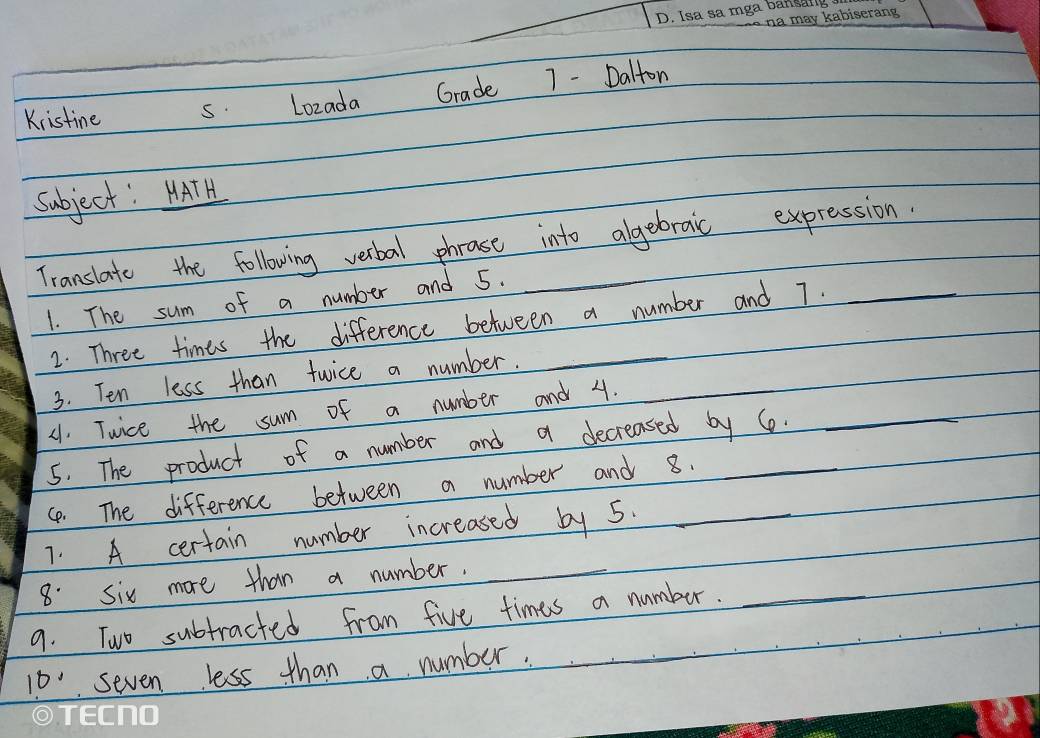 D. Isa sa mga bansang
na may kabiserang
Kristine S. Lozada Grade 7 - Dalton
Subject: MATH
Translate the following verbal phrase into algebraic expression.
1. The sum of a number and 5. ______
2. Three times the difference between a number and 7. ______
3. Ten less than twice a number. ______
4. Twice the sum of a number and 4. ______
5. The product of a number and 9 decreased by 6. ______
6. The difference between a number and 8. ______
7. A certain number increased by 5. ______
8. Six more than a number. ______
9. Two subtracted from five times a number. ______
10. Seven less than a number. ______
TECNO